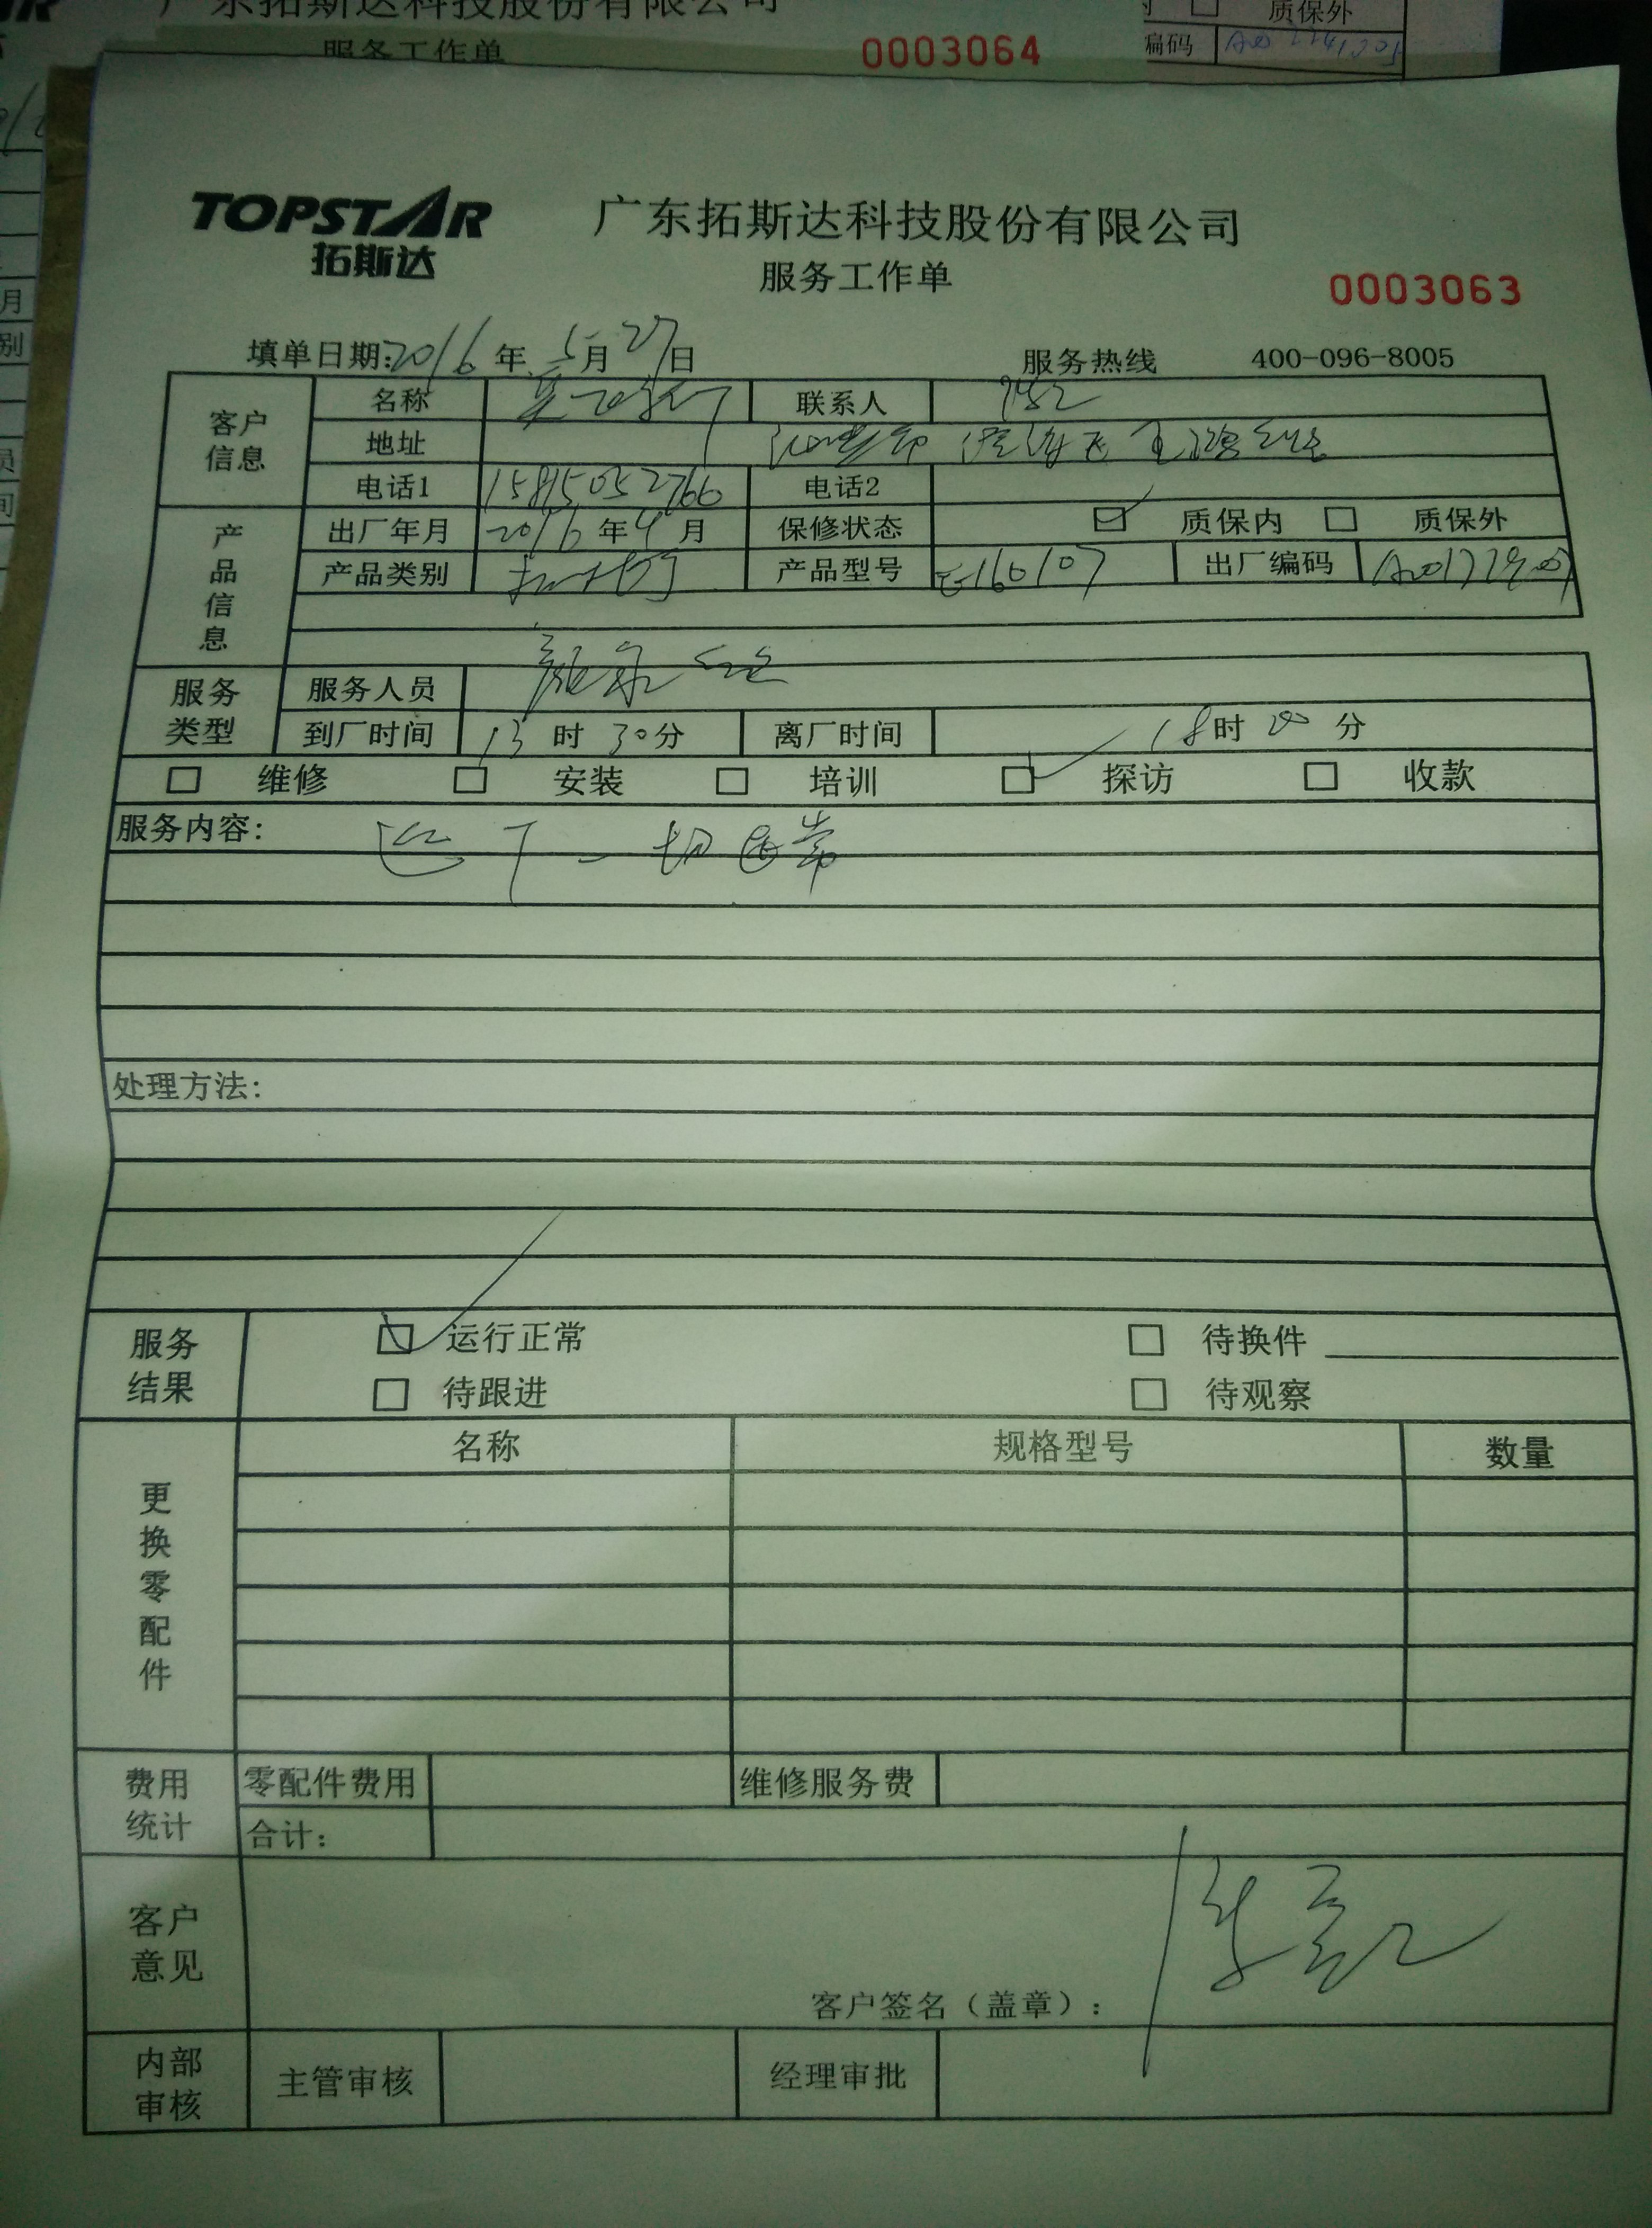 广东拓斯达科技股份有限公司
服务工作单
0003064
质保外
编码
TOPSTAR
拓斯达
广东拓斯达科技股份有限公司
服务工作单
0003063
填单日期:2016年5月27日
服务热线 400-096-8005
客户信息
名称
联系人
地址
电话1 15815052766 电话2
产品信息
出厂年月 2016年4月 保修状态 质保内 质保外
产品类别 产品型号 出厂编码
服务类型
服务人员
到厂时间 13时30分 离厂时间 18时00分
维修 安装 培训 探访 收款
服务内容: 一切正常
处理方法:
服务结果
运行正常 待换件
待跟进 待观察
更换零配件
名称 规格型号 数量
费用统计
零配件费用 维修服务费
合计:
客户意见
客户签名（盖章）:
内部审核
主管审核 经理审批